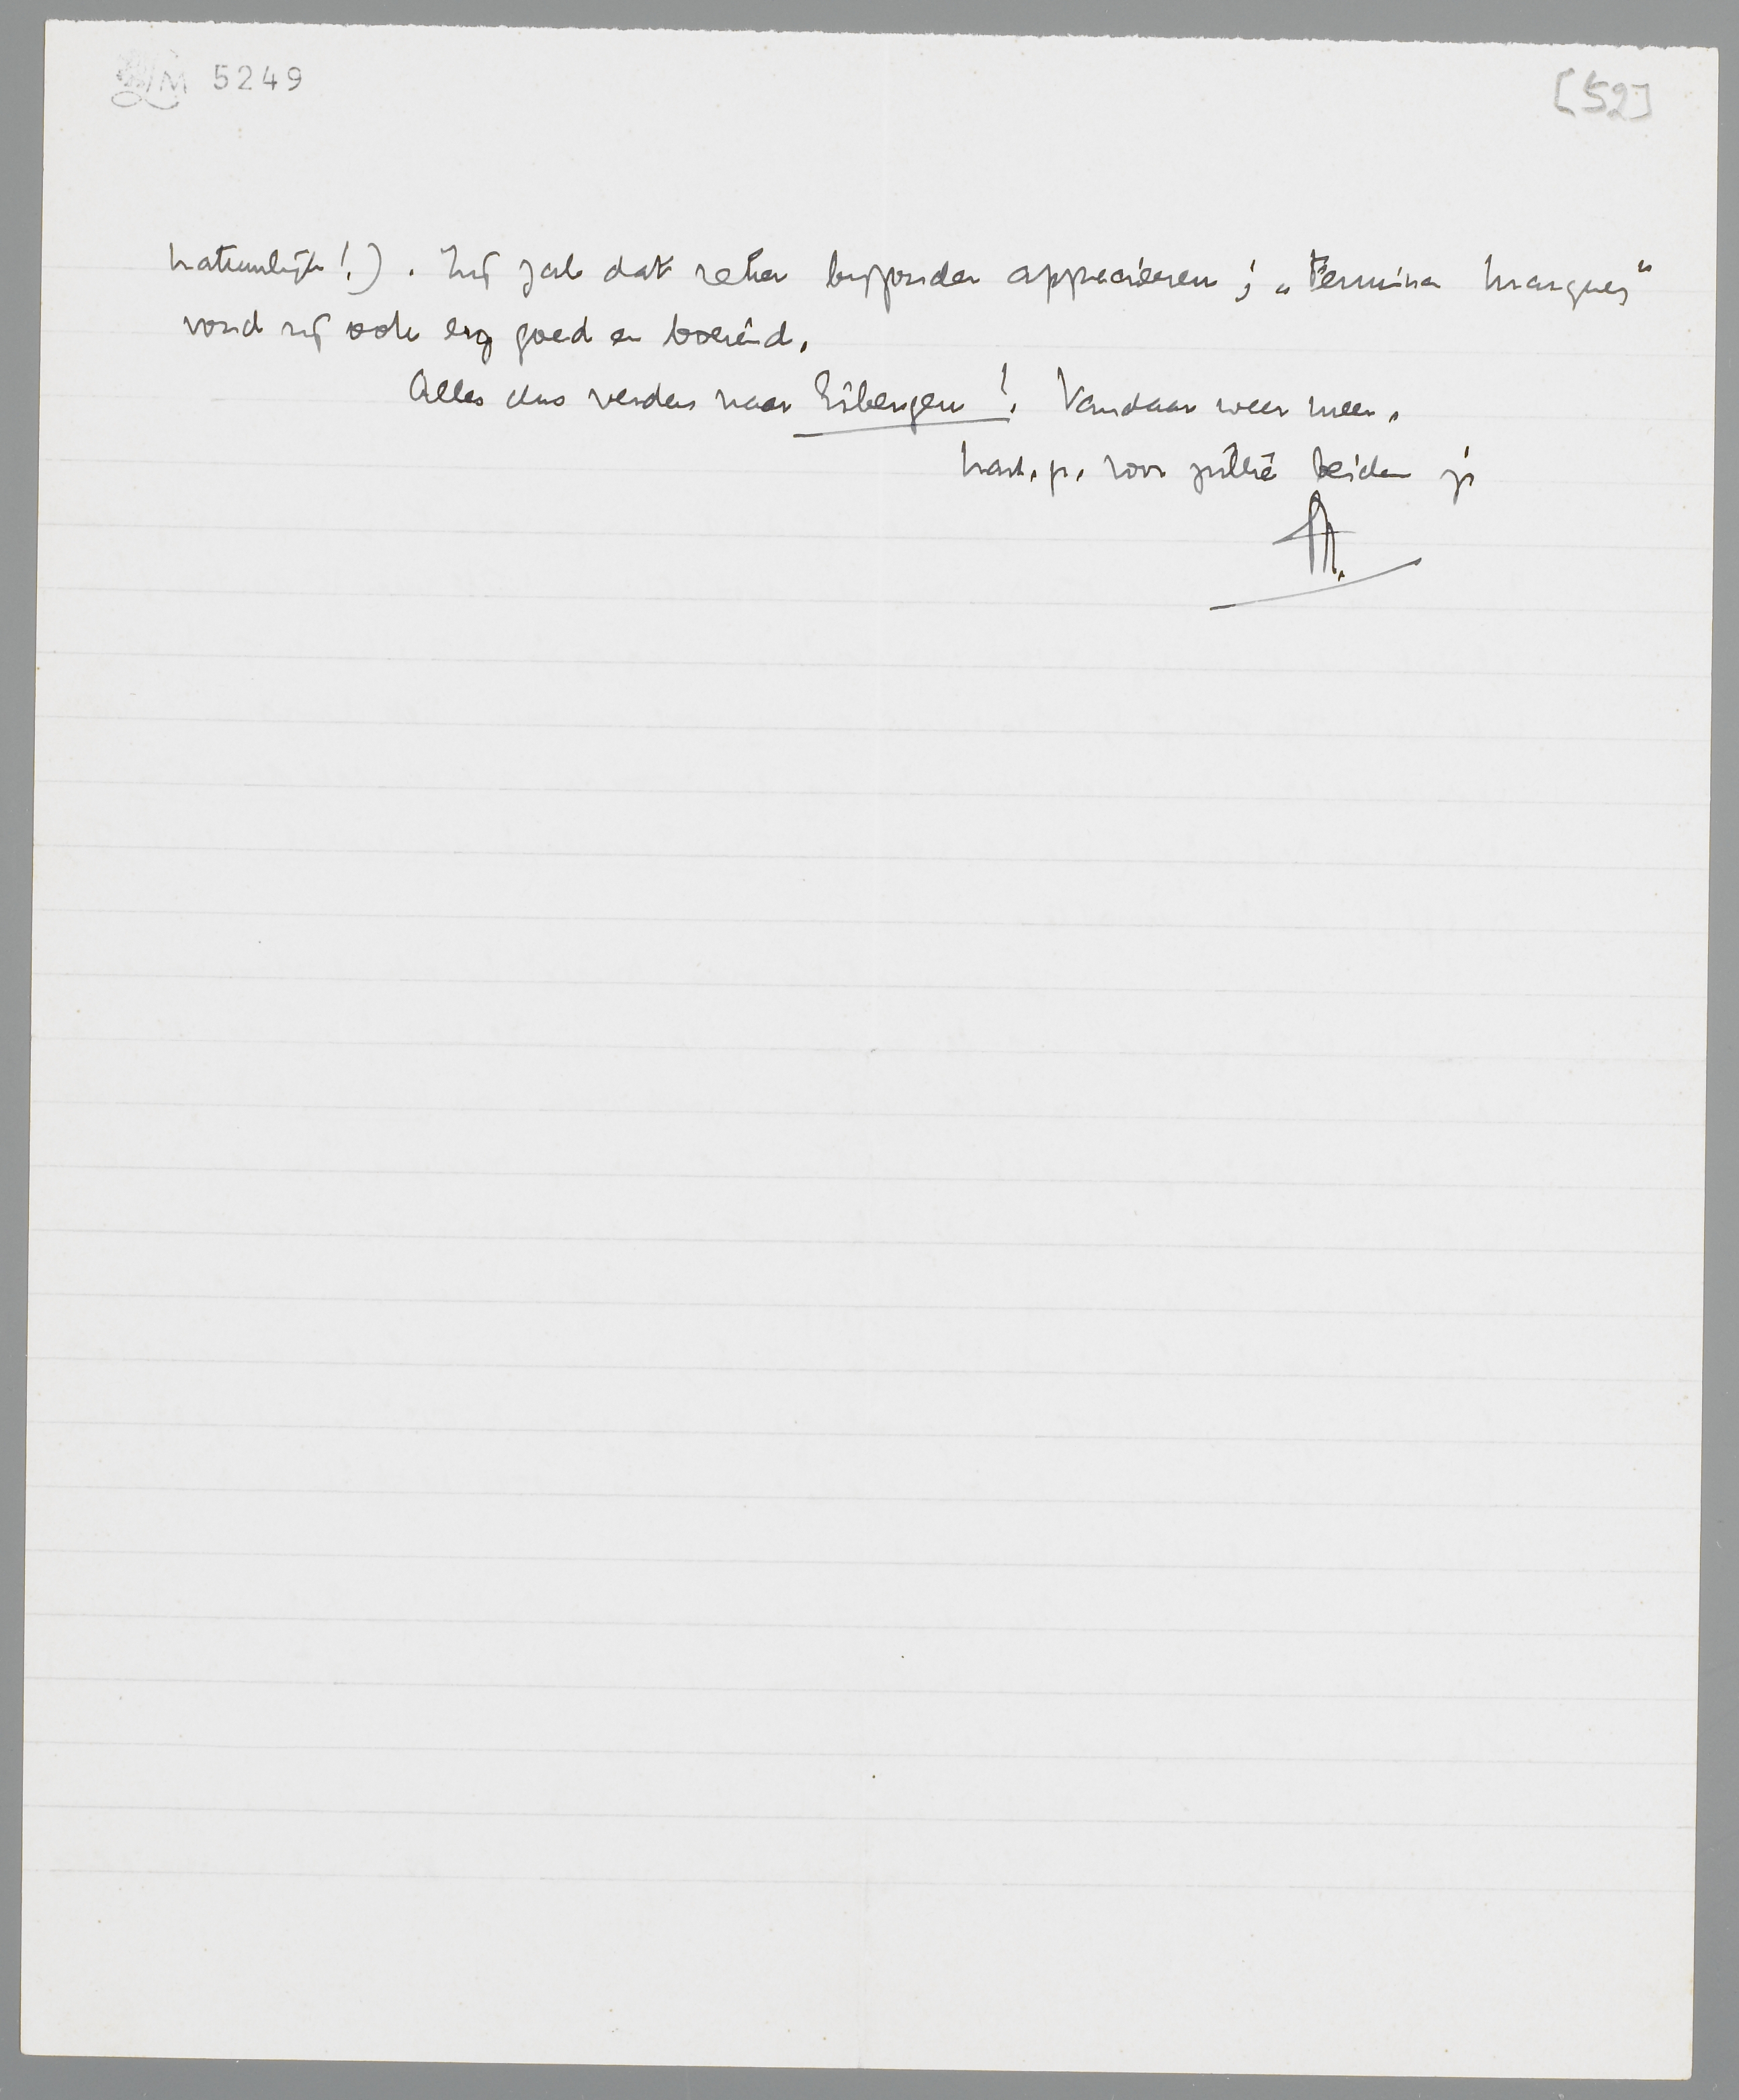 LM 5249
[52]
natuurlijk!). Zij zal dat zeker bijzonder appreciëren; „Femina Marquez"
vond zij ook erg goed en boeiend.
Alles dus verder naar Eibergen! Vandaar weer meer.
hart. gr. voor jullie beiden je
M.